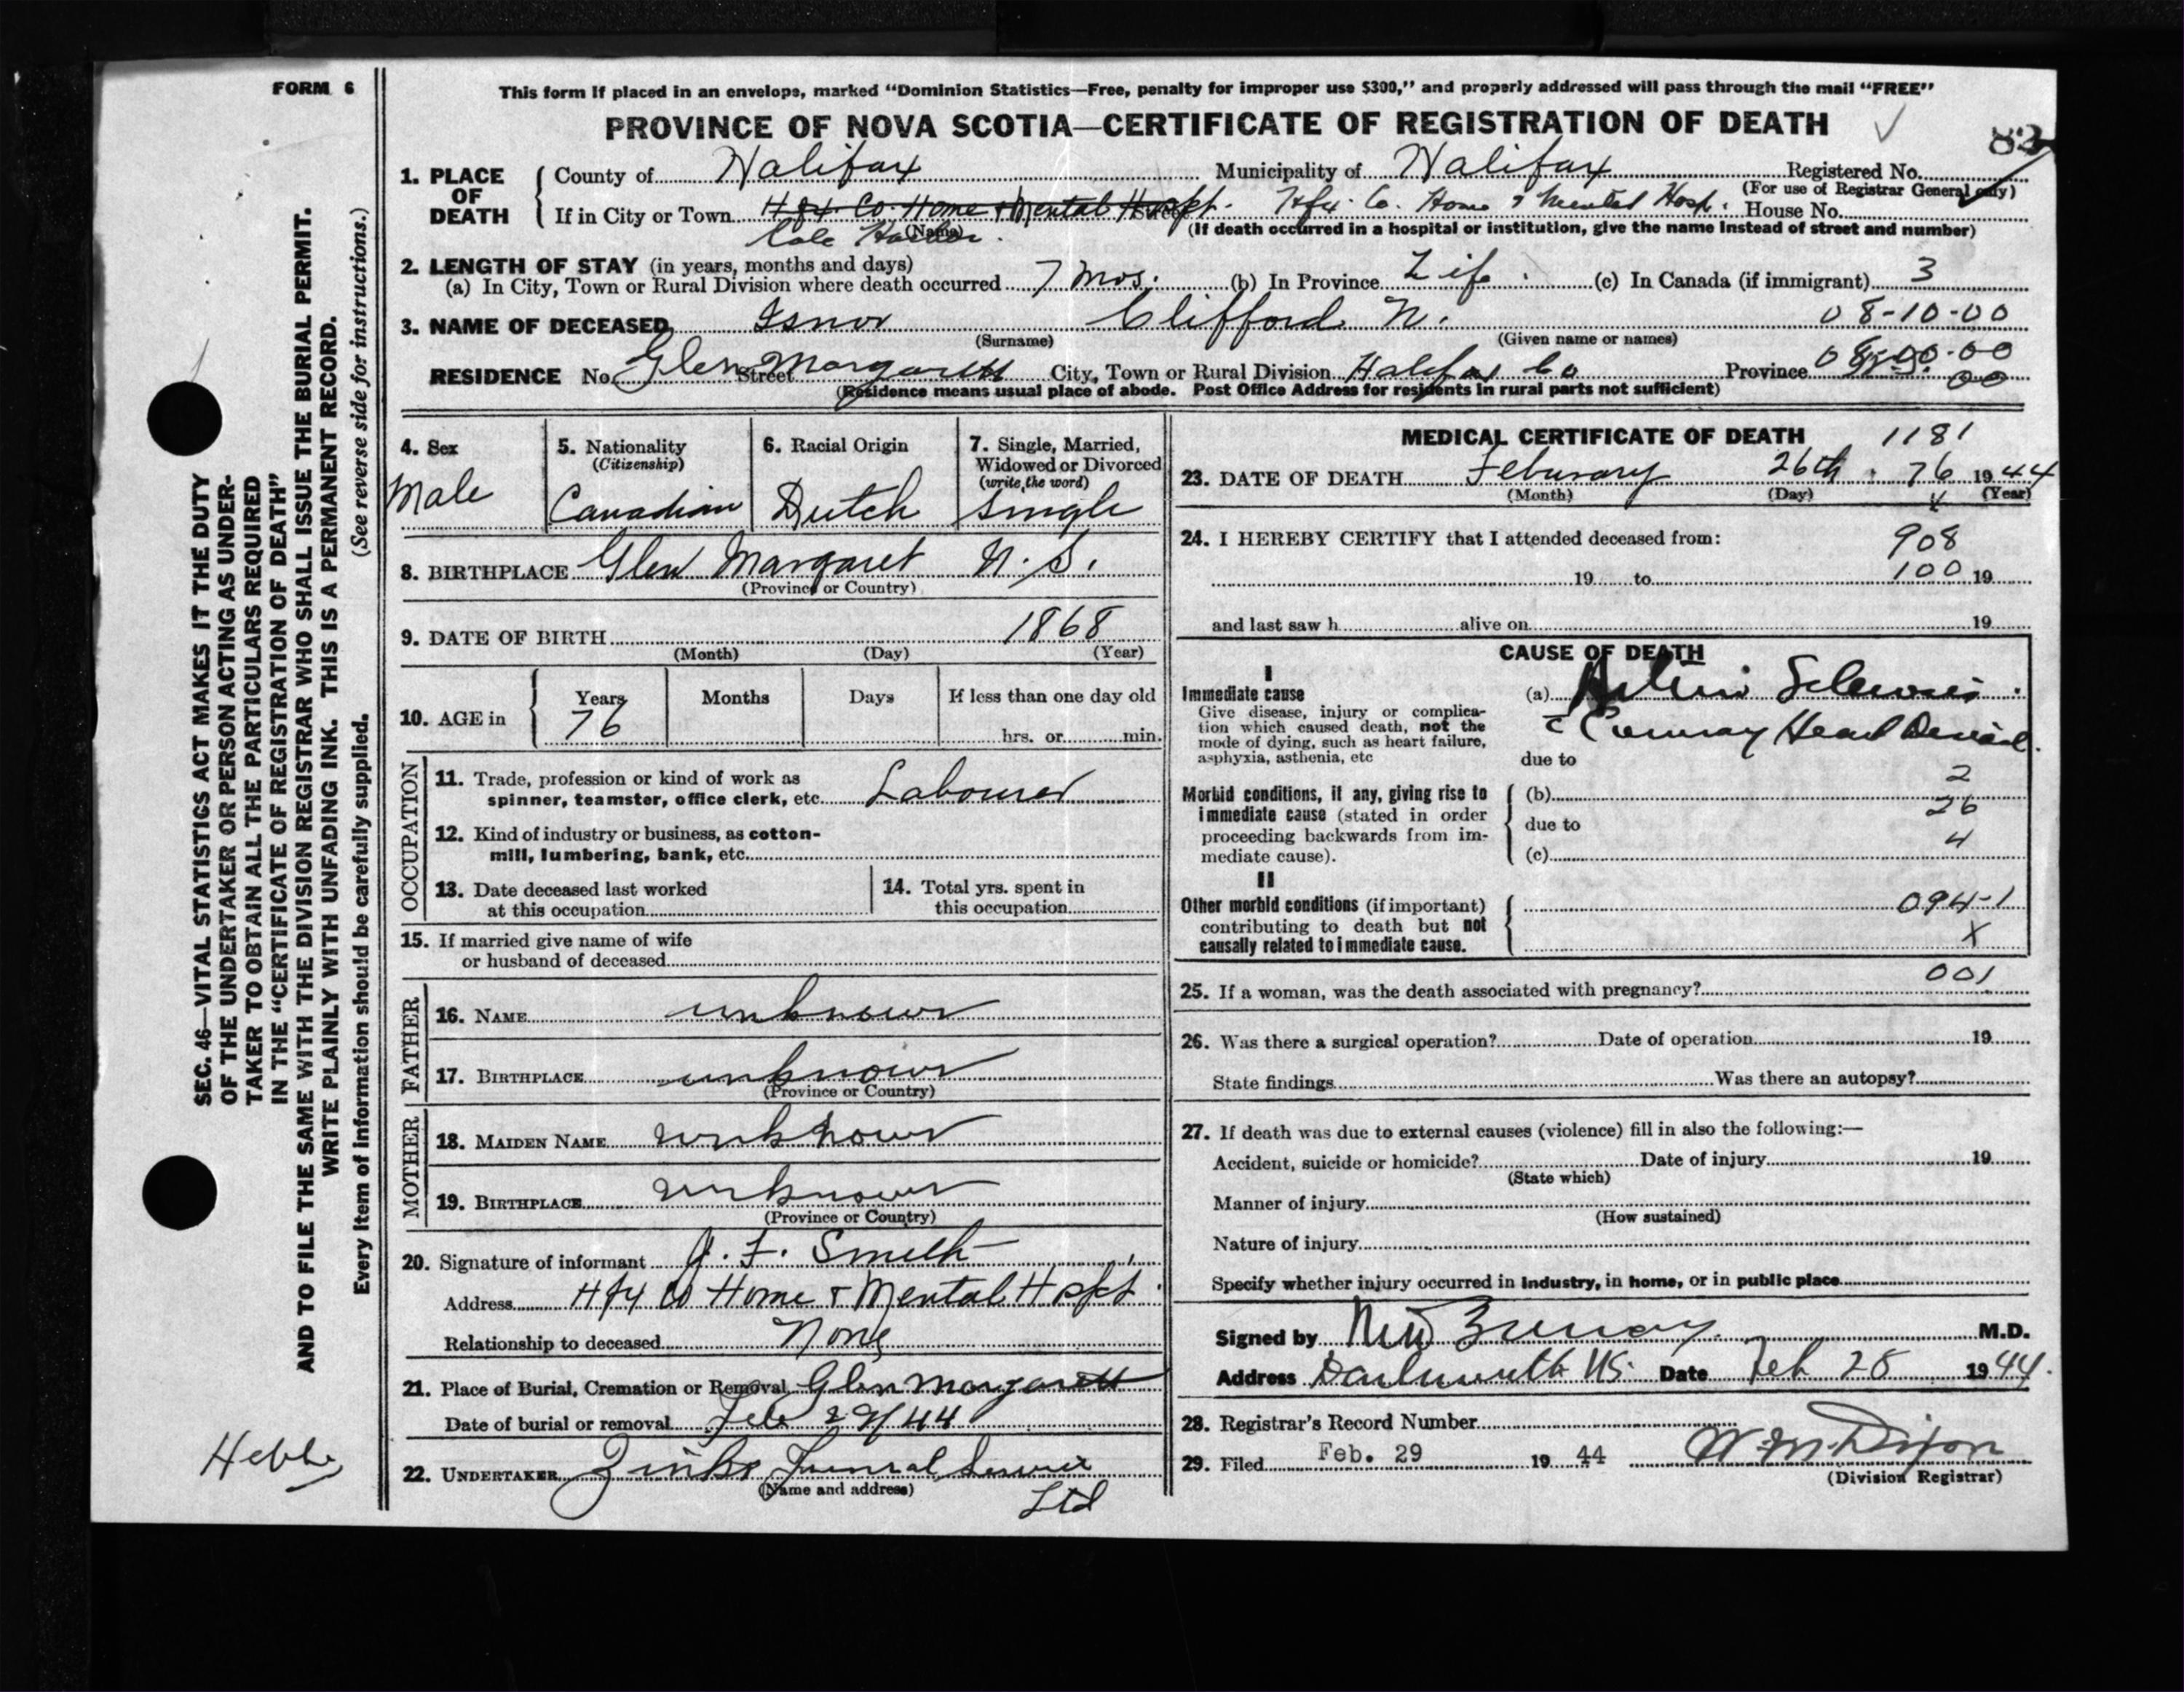 FORM 6
This form if placed in an envelope, marked “Dominion Statistics—Free, penalty for improper use $300,” and properly addressed will pass through the mail “FREE”
PROVINCE OF NOVA SCOTIA—CERTIFICATE OF REGISTRATION OF DEATH
1. PLACE OF DEATH
County of Halifax Municipality of Halifax Registered No.
(For use of Registrar General only)
If in City or Town Hfx. Co. Home & Mental Hospt. Street Hfx. Co. Home & Mental Hosp. House No.
Cole Harbor. (Name) (If death occurred in a hospital or institution, give the name instead of street and number)
2. LENGTH OF STAY (in years, months and days)
(a) In City, Town or Rural Division where death occurred 7 Mos. (b) In Province Life. (c) In Canada (if immigrant) 3
3. NAME OF DECEASED Isnor Clifford N. 08-10-00
(Surname) (Given name or names)
RESIDENCE No. Glen Margarett Street City, Town or Rural Division Halifax Co Province 08-00-00
00
(Residence means usual place of abode. Post Office Address for residents in rural parts not sufficient)
4. Sex
Male
5. Nationality
(Citizenship)
Canadian
6. Racial Origin
Dutch
7. Single, Married,
Widowed or Divorced
(write the word)
Single
8. BIRTHPLACE Glen Margaret N.S.
(Province or Country)
9. DATE OF BIRTH 1868
(Month) (Day) (Year)
10. AGE in
Years Months Days If less than one day old
76 hrs. or min.
OCCUPATION
11. Trade, profession or kind of work as
spinner, teamster, office clerk, etc. Labourer
12. Kind of industry or business, as cotton-
mill, lumbering, bank, etc.
13. Date deceased last worked
at this occupation
14. Total yrs. spent in
this occupation
15. If married give name of wife
or husband of deceased
FATHER
16. NAME unknown
17. BIRTHPLACE unknown
(Province or Country)
MOTHER
18. MAIDEN NAME unknown
19. BIRTHPLACE unknown
(Province or Country)
20. Signature of informant J. F. Smith
Address Hfx Co Home & Mental Hospt.
Relationship to deceased None
21. Place of Burial, Cremation or Removal Glen Margarett
Date of burial or removal Feb 29/44
22. UNDERTAKER Zinks Funeral Service
(Name and address) Ltd
MEDICAL CERTIFICATE OF DEATH 1181
23. DATE OF DEATH Feburary 26th. 76 1944
(Month) (Day) (Year)
24. I HEREBY CERTIFY that I attended deceased from: 908
19 to 100 19
and last saw h alive on 19
CAUSE OF DEATH
I
Immediate cause
Give disease, injury or complica-
tion which caused death, not the
mode of dying, such as heart failure,
asphyxia, asthenia, etc
(a)
Heart
due to
2
Morbid conditions, if any, giving rise to
immediate cause (stated in order
proceeding backwards from im-
mediate cause).
(b)
26
due to
4
(c)
II
Other morbid conditions (if important)
contributing to death but not
causally related to immediate cause.
094-1
X
001
25. If a woman, was the death associated with pregnancy?
26. Was there a surgical operation? Date of operation 19
State findings Was there an autopsy?
27. If death was due to external causes (violence) fill in also the following:—
Accident, suicide or homicide? Date of injury 19
(State which)
Manner of injury
(How sustained)
Nature of injury
Specify whether injury occurred in industry, in home, or in public place
Signed by M.D.
Address Dartmouth NS. Date Feb 28 1944.
28. Registrar's Record Number
29. Filed Feb. 29 19 44 W. M. Dixon
(Division Registrar)
SEC. 46—VITAL STATISTICS ACT MAKES IT THE DUTY
OF THE UNDERTAKER OR PERSON ACTING AS UNDER-
TAKER TO OBTAIN ALL THE PARTICULARS REQUIRED
IN THE “CERTIFICATE OF REGISTRATION OF DEATH”
AND TO FILE THE SAME WITH THE DIVISION REGISTRAR WHO SHALL ISSUE THE BURIAL PERMIT.
WRITE PLAINLY WITH UNFADING INK. THIS IS A PERMANENT RECORD.
Every item of information should be carefully supplied. (See reverse side for instructions.)